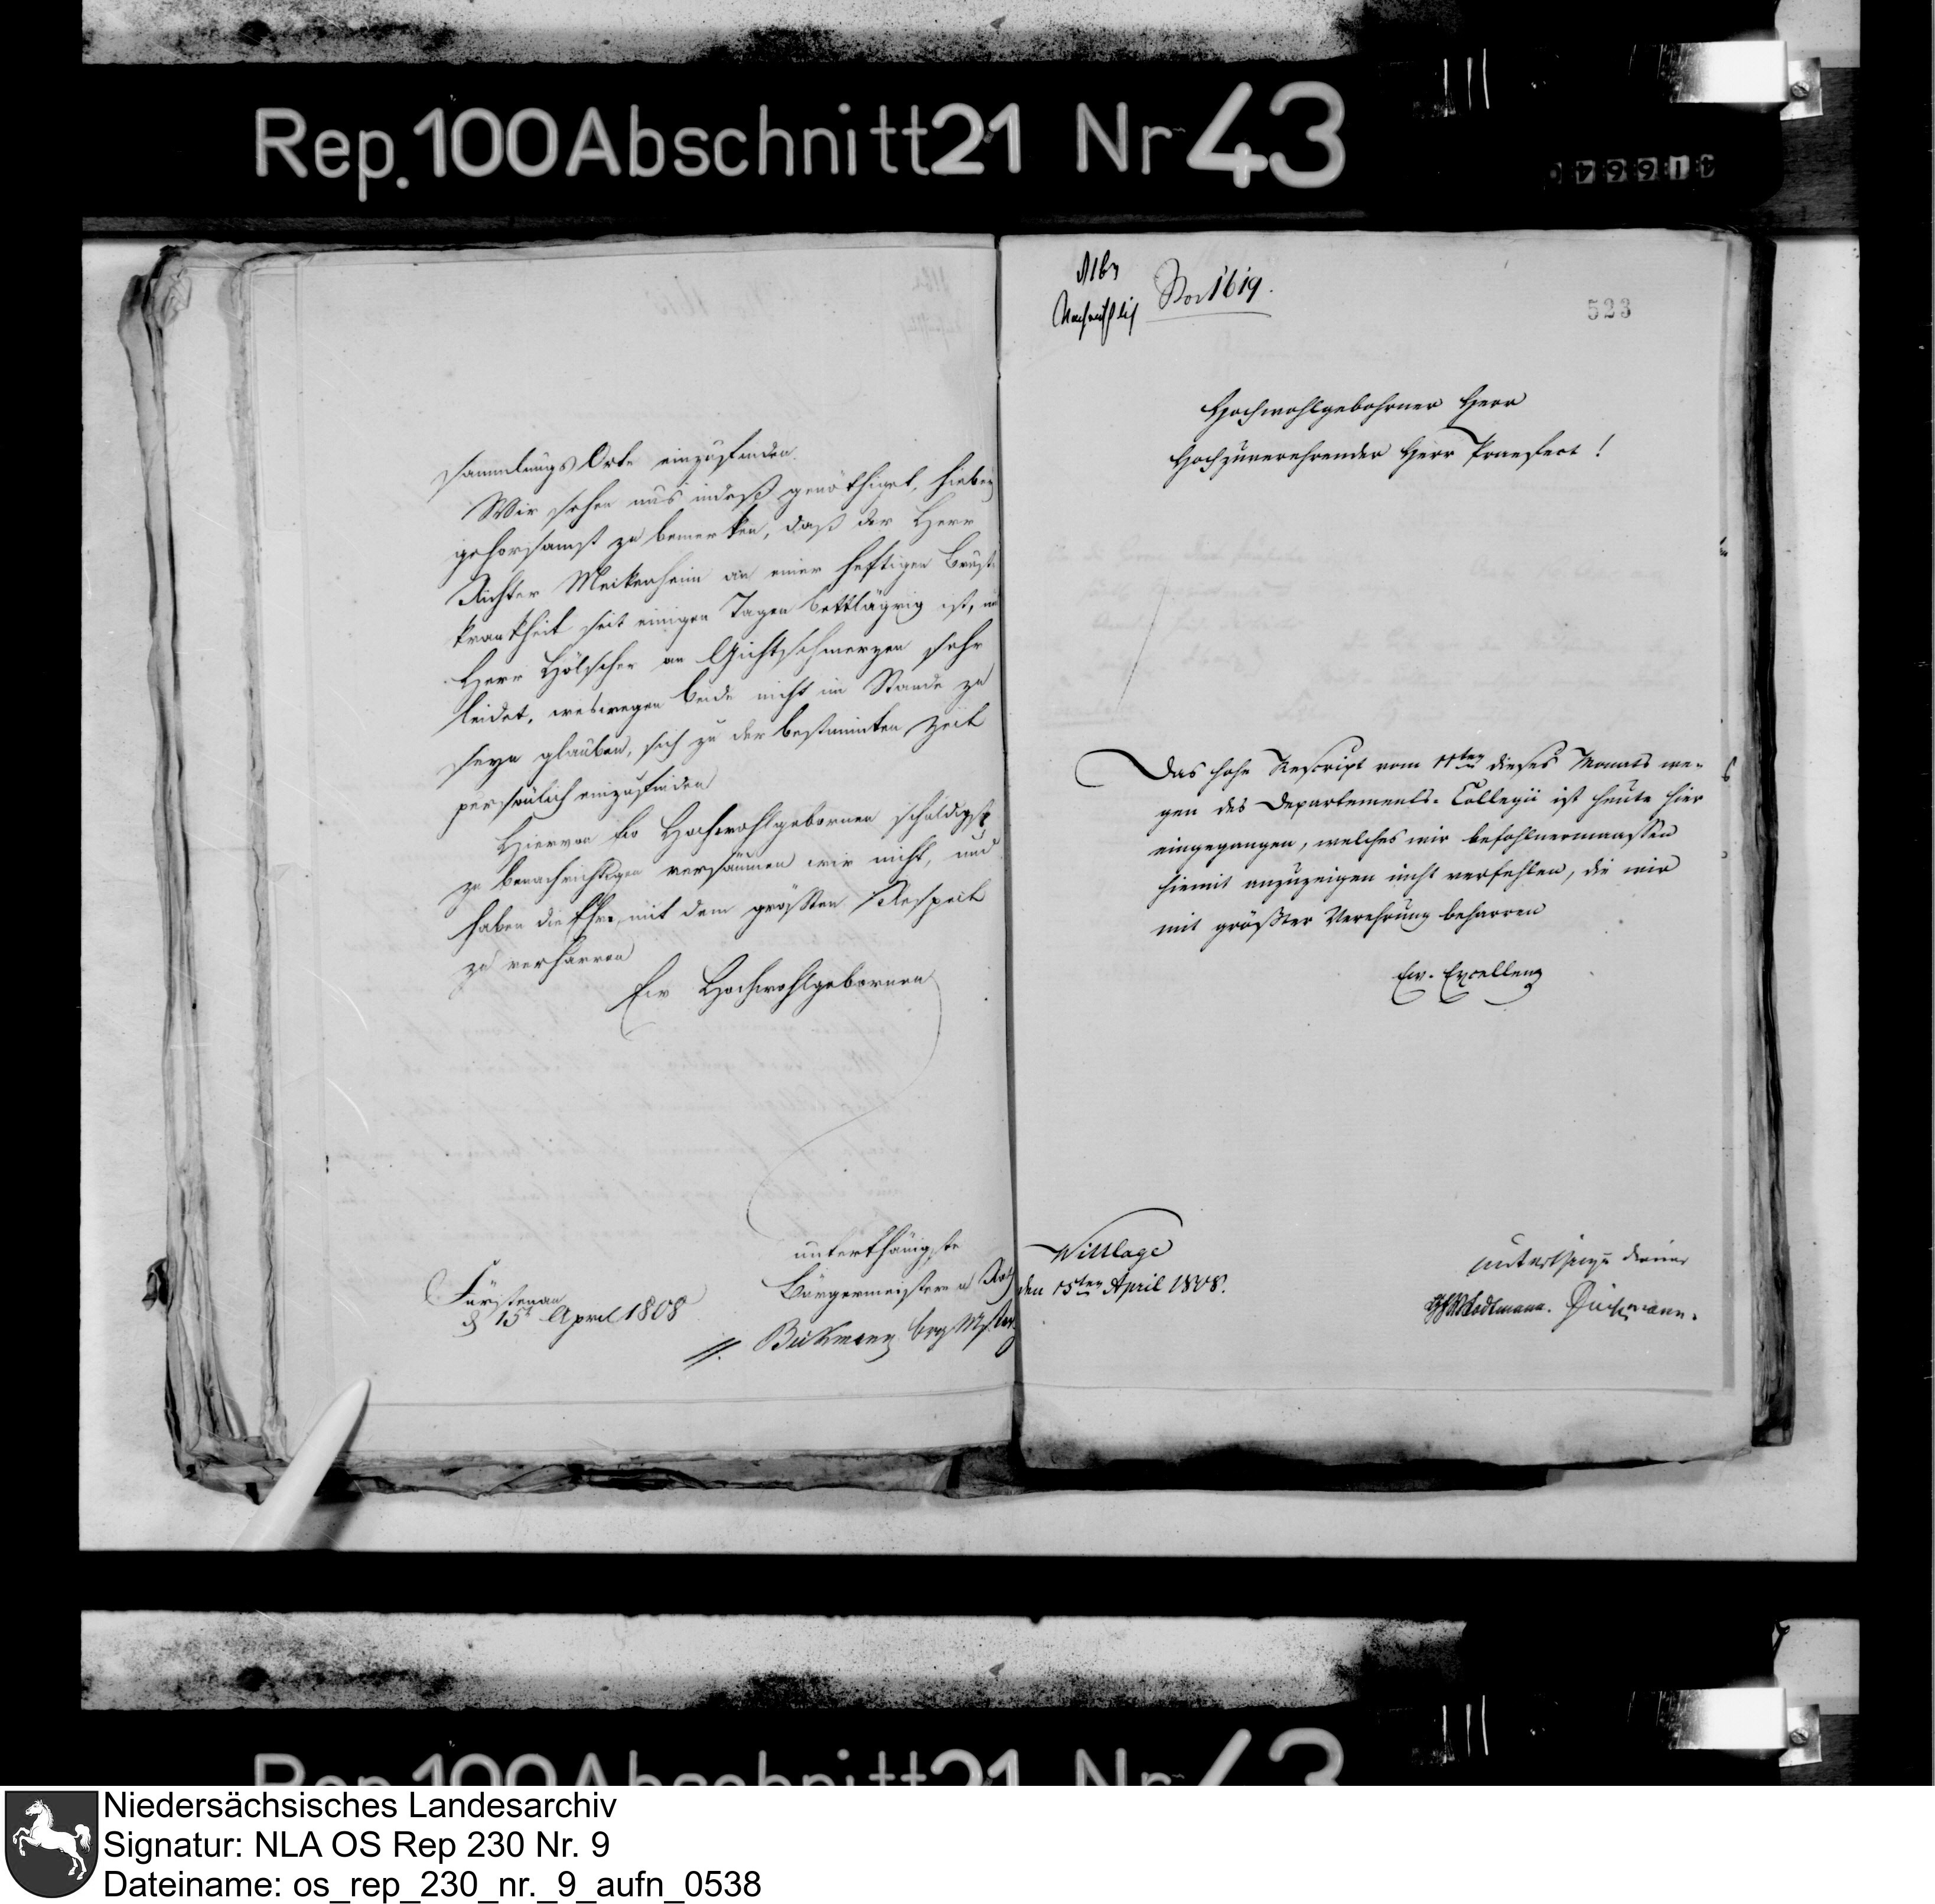 Rep. 100 Abschnitt 21 Nr 43
sammlungs Orte einzufinden.
Wir sehen uns indeß genöthiget, hiebey
gehorsamst zu bemerken, daß der Herr
Richter Meikenheim an einer heftigen Brust-
krankheit seit einigen Tagen bettlägrig ist, und
Herr Hölscher an Gichtschmerzen sehr
leidet, weswegen beide nicht im Stande zu
seyn glauben, sich zu der bestimmten Zeit
persönlich einzufinden
Hiervon Ew Hochwohlgebornen schuldigst
zu benachrichtigen versäumen wir nicht, und
haben die Ehre, mit dem größten Respect
zu verharren
Ew Hochwohlgebornen
unterthänigste
Bürgermeister u Rath
Fürstenau
d 15t April 1808
523
Hochwohlgebohrner Herr
Hochzuverehrender Herr Praefect!
Das hohe Rescript vom 11ten dieses Monats we-
gen des Departements-Collegii ist heute hier
eingegangen, welches wir befohlnermaassen
hiemit anzuzeigen nicht verfehlen, die wir
mit größter Verehrung beharren
Ew. Excellenz
Wittlage
den 15ten April 1808.
Niedersächsisches Landesarchiv
Signatur: NLA OS Rep 230 Nr. 9
Dateiname: os_rep_230_nr._9_aufn_0538